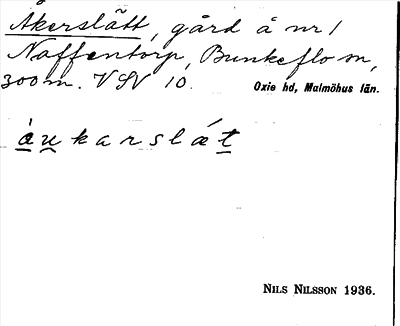 Åkerslätt, gård å nr 1
Naffentorp, Bunkeflo sn,
300 m. V SV 10.
Oxie hd, Malmöhus län.
àu̯karslǽt
NILS NILSSON 1936.